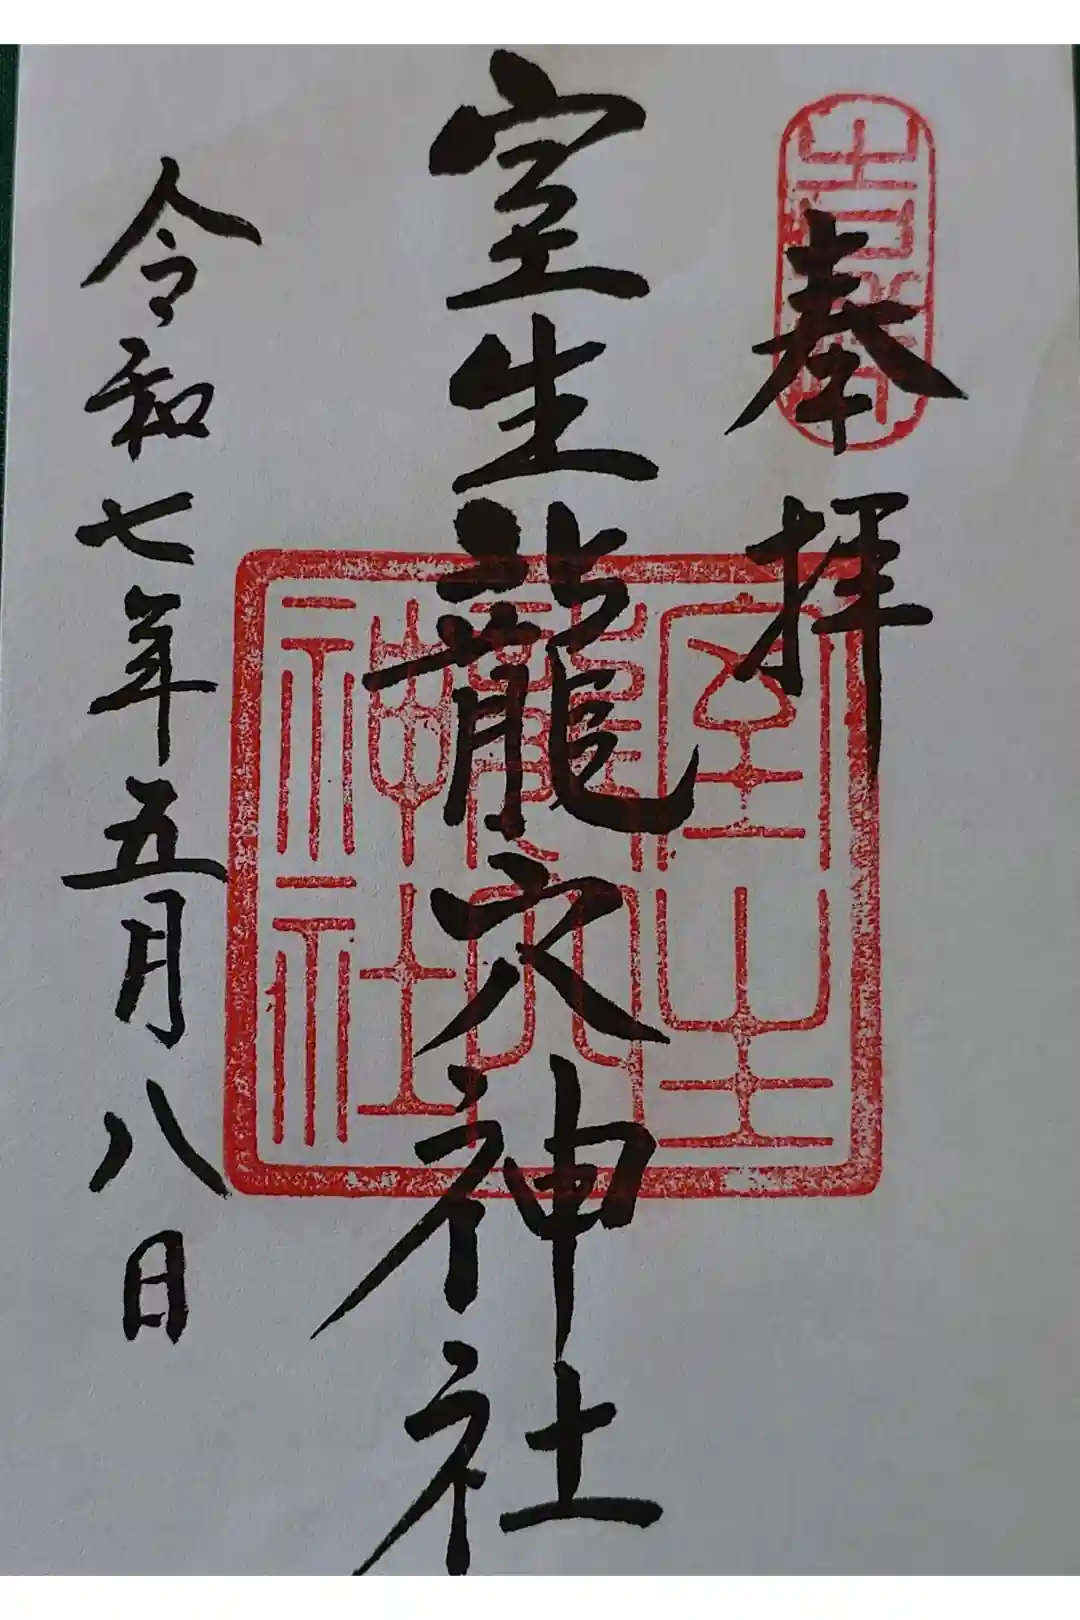 奉拝
室生龍穴神社
令和七年五月八日
室生
龍穴
神社
吉祥